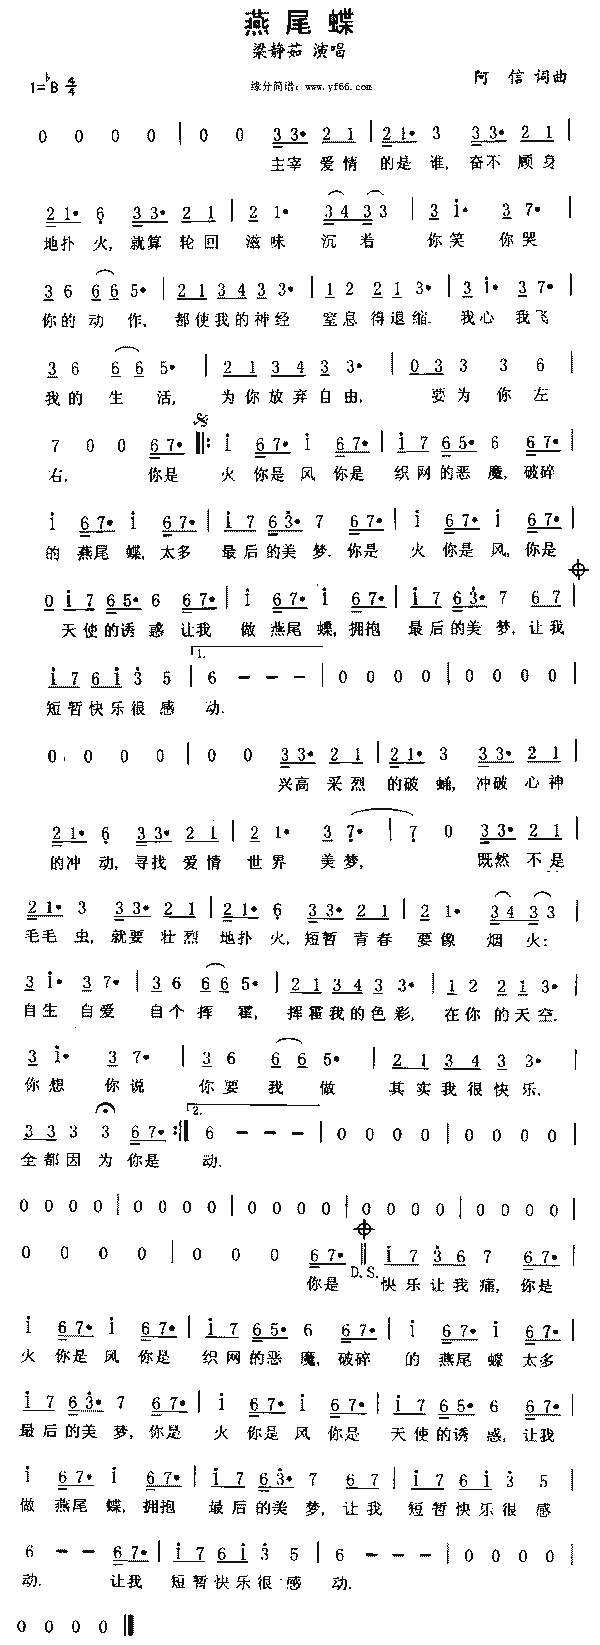 燕尾蝶
梁静茹 演唱
1=♭B 4/4
缘分简谱: www.yf66.com
阿 信 词曲
0 0 0 0 | 0 0 3 3• 2 1 | 2 1• 3 3 3• 2 1 |
主宰 爱情 的是 谁, 奋不 顾身
2 1• 6 3 3• 2 1 | 2 1• 3 4 3 3 | 3 1• 3 7• |
地扑 火, 就算 轮回 滋味 沉着 你笑 你哭
3 6 6 6 5• | 2 1 3 4 3 3• | 1 2 2 2 1 3• | 3 1• 3 7• |
你的 动 作, 都使我的神经 窒息 得退缩. 我心 我飞
3 6 6 6 5• | 2 1 3 4 3 3• | 0 3 3 3 6 |
我的 生 活, 为你放弃自由, 要为 你 左
7 0 0 6 7• ‖: 1 6 7• 1 6 7• | 1 7 6 5• 6 6 7• |
右, 你是 火 你是 风 你是 织网的恶 魔, 破碎
1 6 7• 1 6 7• | 1 7 6 3• 7 6 7• | 1 6 7• 1 6 7• |
的 燕尾 蝶, 太多 最后的美 梦. 你是 火 你是 风, 你是
0 1 7 6 5• 6 6 7• | 1 6 7• 1 6 7• | 1 7 6 3• 7 6 7 |
天使的诱 惑 让我 做 燕尾 蝶, 拥抱 最后的美 梦, 让我
1.
1 7 6 1 3 5 | 6 - - - | 0 0 0 0 | 0 0 0 0 |
短暂快乐很 感 动.
0 0 0 0 | 0 0 3 3• 2 1 | 2 1• 3 3 3• 2 1 |
兴高 采烈 的破 蛹, 冲破 心神
2 1• 6 3 3• 2 1 | 2 1• 3 7• | 7 0 3 3• 2 1 |
的冲 动, 寻找 爱情 世界 美梦, 既然 不是
2 1• 3 3 3• 2 1 | 2 1• 6 3 3• 2 1 | 2 1• 3 4 3 3 |
毛毛 虫, 就要 壮烈 地扑 火, 短暂 青春 要像 烟火:
3 1• 3 7• | 3 6 6 6 5• | 2 1 3 4 3 3• | 1 2 2 2 1 3• |
自生 自爱 自个 挥 霍, 挥霍我的色彩, 在你 的天空.
3 1• 3 7• | 3 6 6 6 5• | 2 1 3 4 3 3• |
你想 你说 你要 我 做 其实我很快乐,
2.
3 3 3 3 6 7• :‖ 6 - - - | 0 0 0 0 | 0 0 0 0 |
全都因 为 你是 动.
0 0 0 0 | 0 0 0 0 | 0 0 0 0 | 0 0 0 0 | 0 0 0 0 |
0 0 0 0 | 0 0 0 6 7• ‖ 1 7 3 6 7 6 7• |
你是 D.S. 快乐让我 痛, 你是
1 6 7• 1 6 7• | 1 7 6 5• 6 6 7• | 1 6 7• 1 6 7• |
火 你是 风 你是 织网的恶 魔, 破碎 的 燕尾 蝶 太多
1 7 6 3• 7 6 7• | 1 6 7• 1 6 7• | 1 7 6 5• 6 6 7• |
最后的美 梦, 你是 火 你是 风 你是 天使的诱 惑, 让我
1 6 7• 1 6 7• | 1 7 6 3• 7 6 7• | 1 7 6 1 3 5 |
做 燕尾 蝶, 拥抱 最后的美 梦, 让我 短暂快乐很 感
6 - - 6 7• | 1 7 6 1 3 5 | 6 - - - | 0 0 0 0 |
动. 让我 短暂快乐很 感 动.
0 0 0 0 ‖